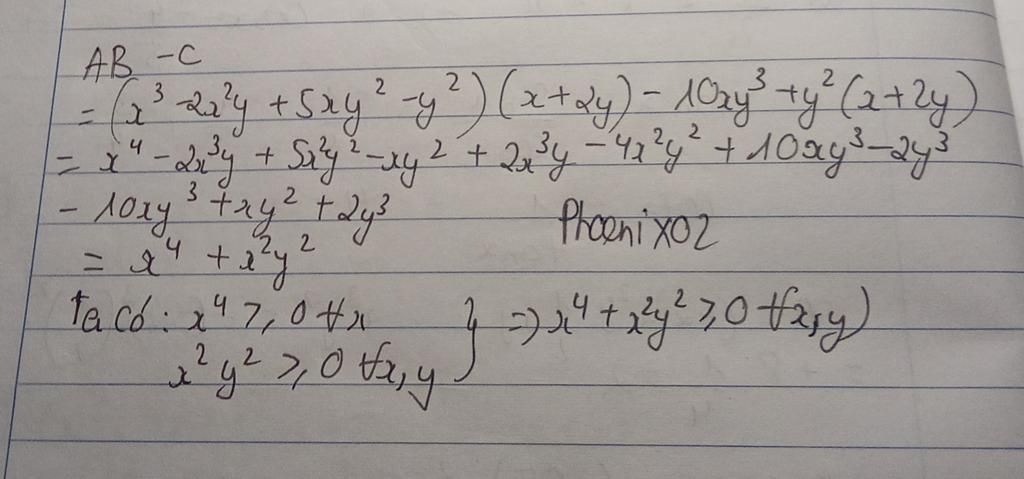 AB - C
= (x³ - 2x²y + 5xy² - y²) (x + 2y) - 10xy³ + y² (x + 2y)
= x⁴ - 2x³y + 5x²y² - xy² + 2x³y - 4x²y² + 10xy³ - 2y³
- 10xy³ + xy² + 2y³
Phoenix02
= x⁴ + x²y²
Ta có: x⁴ ≥ 0 ∀x } => x⁴ + x²y² ≥ 0 ∀x,y)
x²y² ≥ 0 ∀x,y